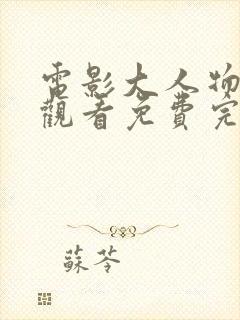 電影大人物
觀看免費完
蘇苓